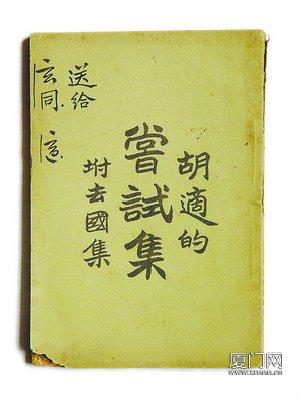 胡適的
嘗試集
坿去國集
送給
玄同. 適.
厦门网
www.xmnn.cn